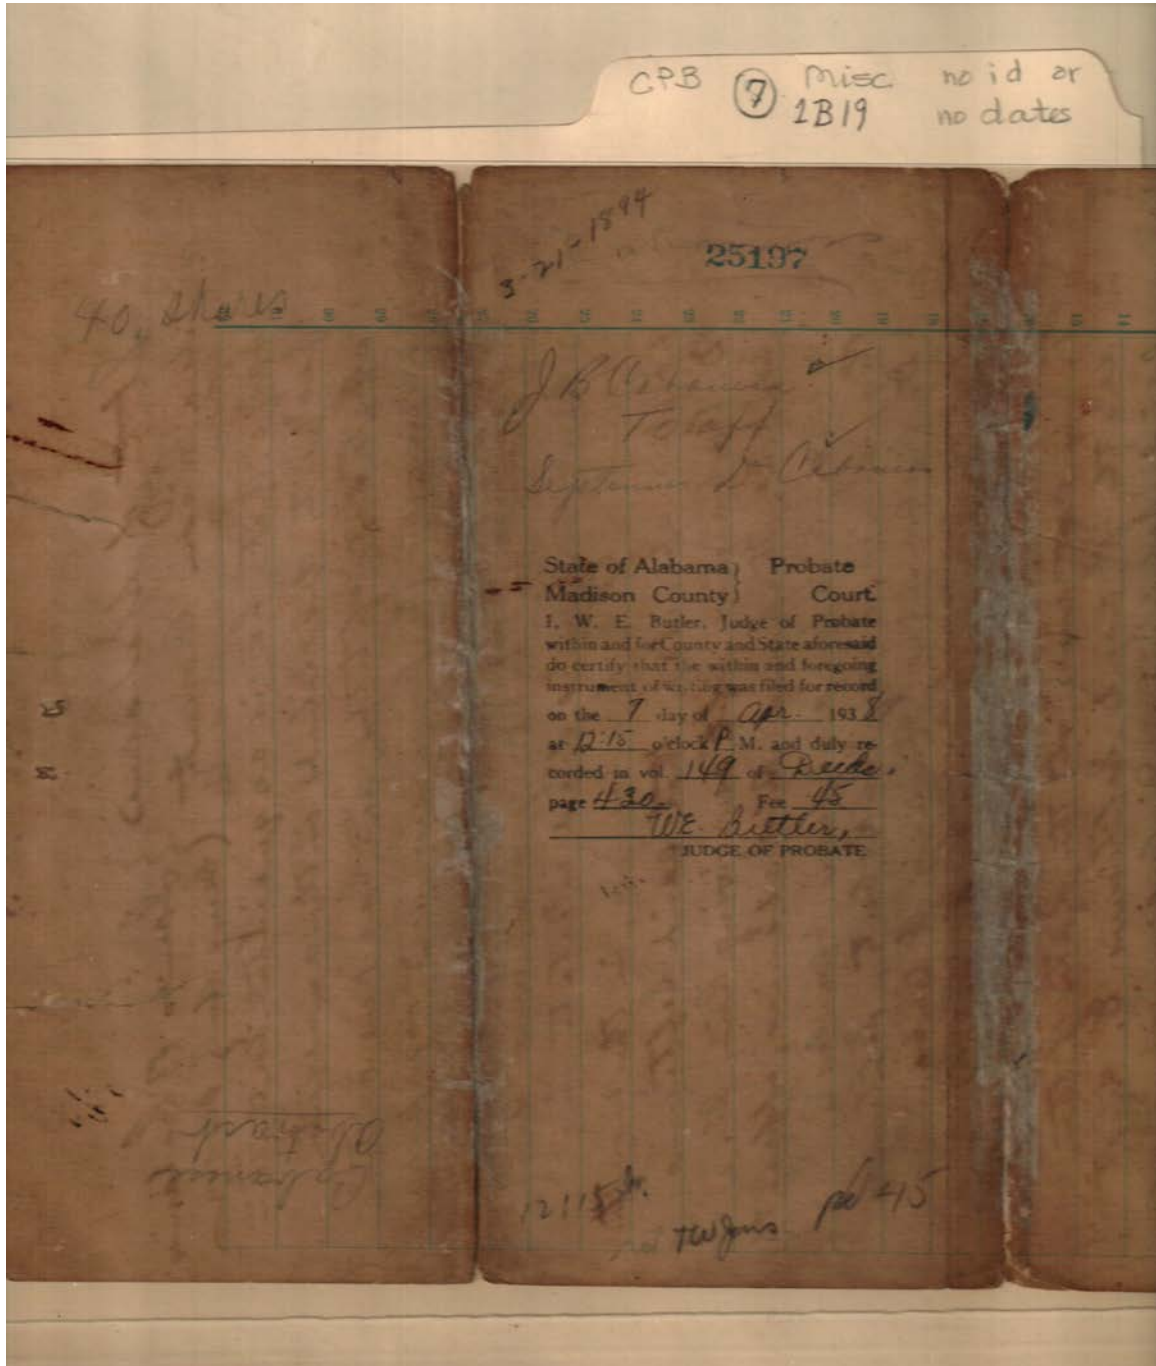 CPB ⑦ Misc. no id or
1B19 no dates
3-21-1894
25197
40. Shares
J B Cabaniss
To
Septimus D. Cabaniss
State of Alabama } Probate
Madison County } Court
I, W. E. Butler, Judge of Probate
within and for County and State aforesaid
do certify that the within and foregoing
instrument of writing was filed for record
on the 7 day of Apr. 1938
at 12:15 o'clock P. M. and duly re-
corded in vol. 149 of Deeds,
page 430 Fee 45
W.E. Butler,
JUDGE OF PROBATE
Cabaniss
Abstract
pd 45